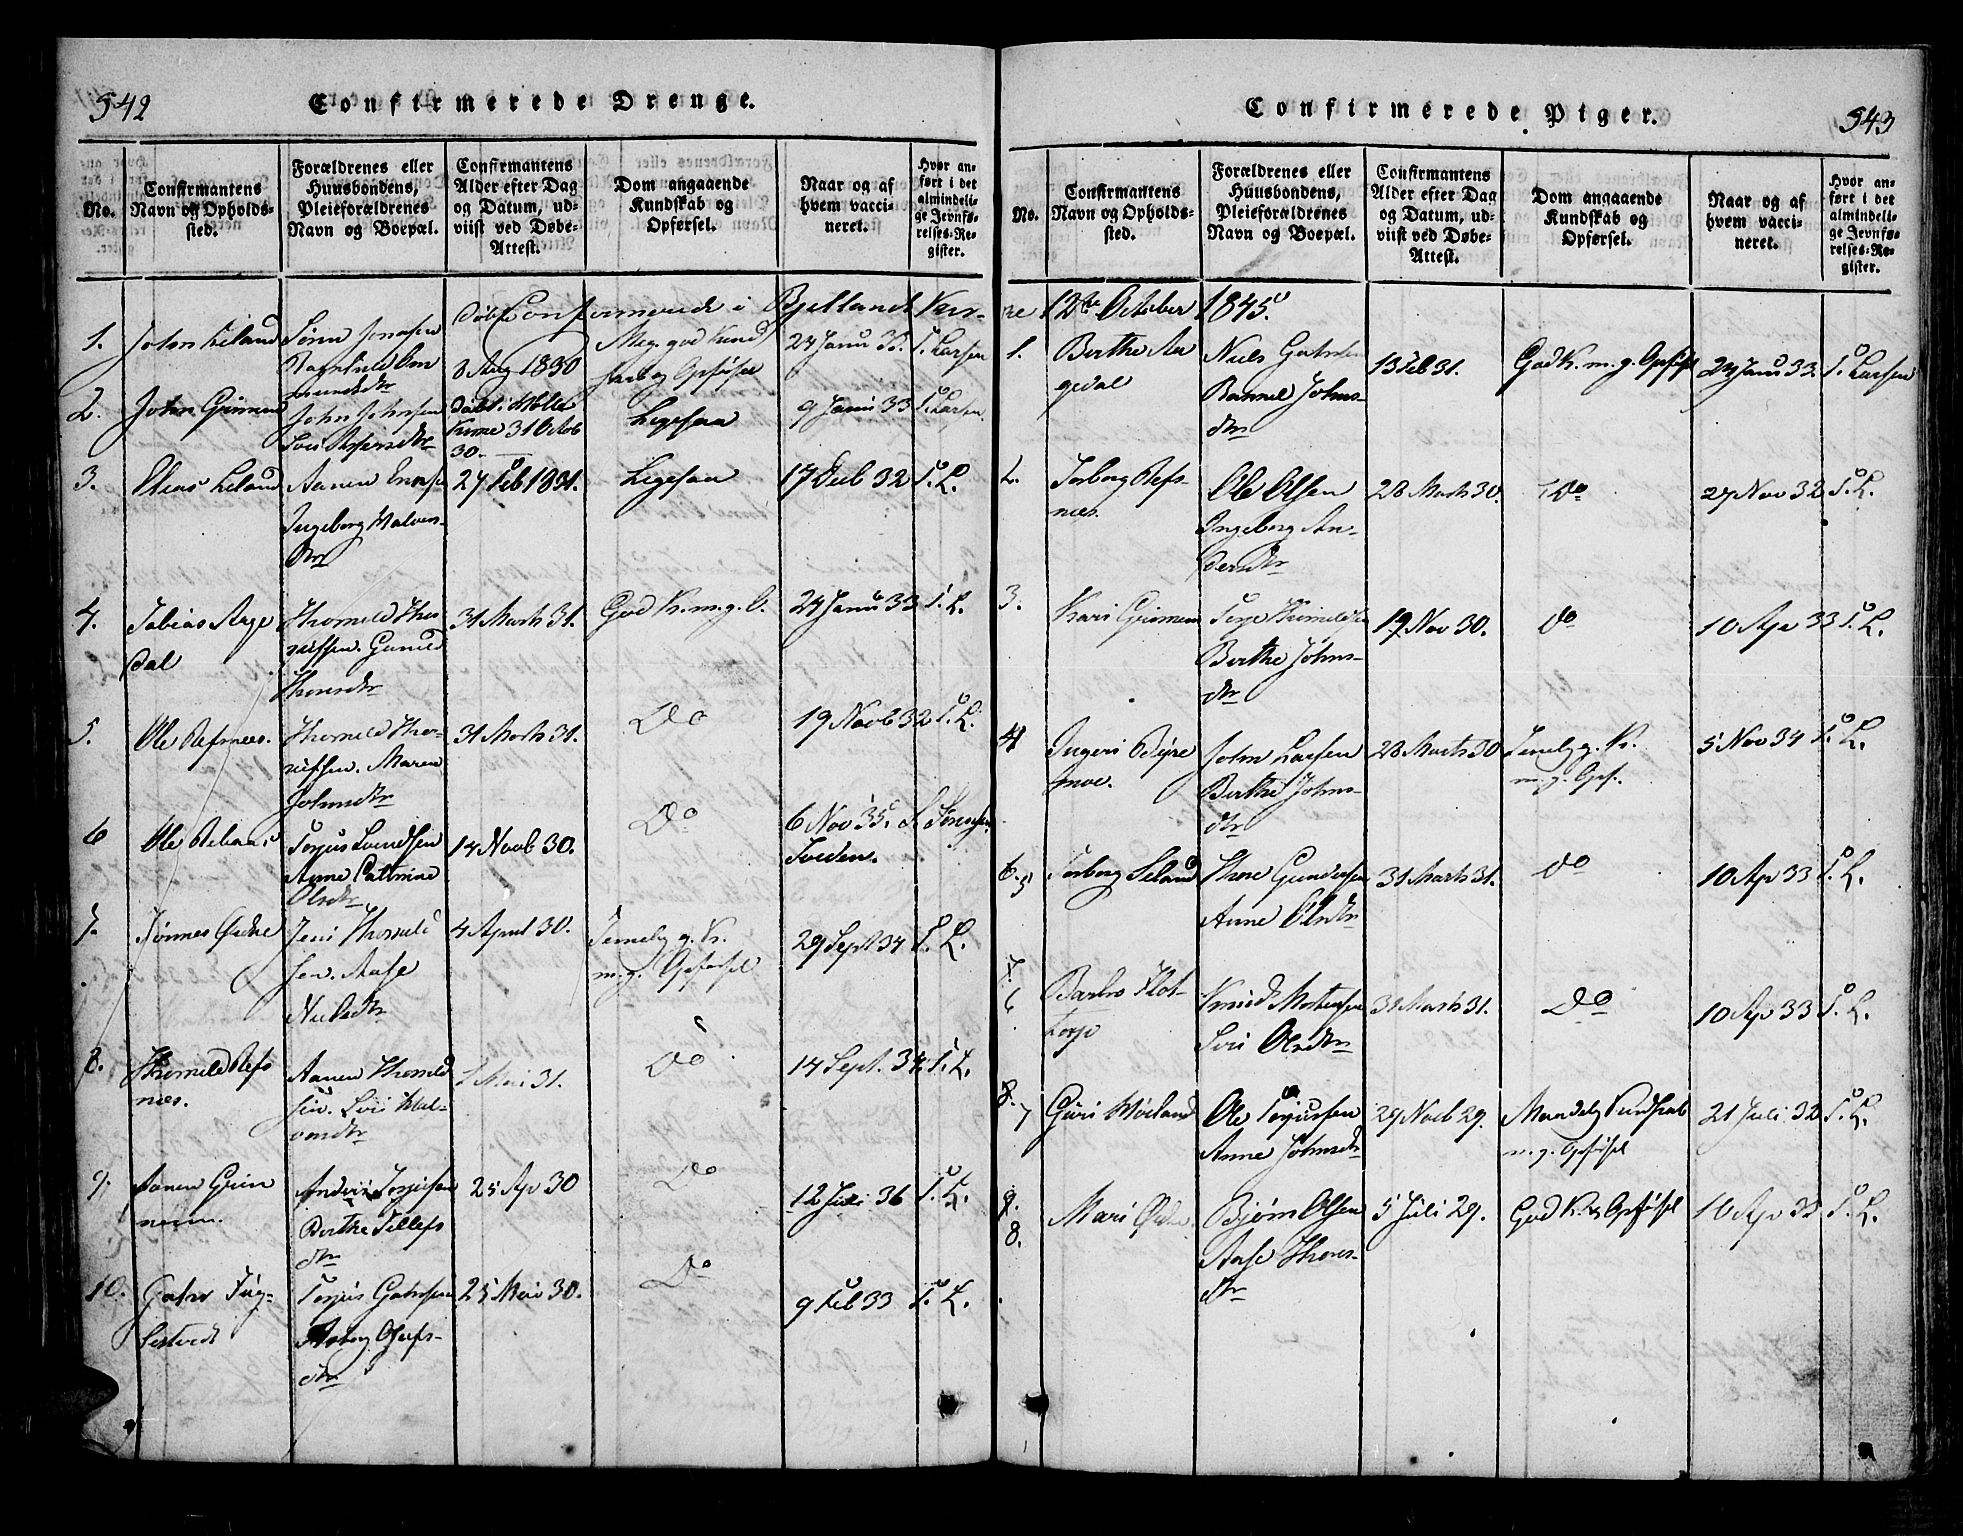 542
Confirmerede Drenge.
No.
Confirmantens
Navn og Opholds-
sted.
Forældrenes eller
Huusbondens,
Pleieforældrenes
Navn og Boepæl.
Confirmantens
Alder efter Dag
og Datum, ud-
viist ved Døbe-
Attest.
Dom angaaende
Kundskab og
Opførsel.
Naar og af
hvem vacci-
neret.
Hvor an-
ført i det
almindeli-
ge Jevnfø-
relses-Re-
gister.
Confirmerede i Bjellands Kir-
1. John Leland
Sønn Jensen
8 Aug 1830
Meg. god Kund
skab og Opførsel
24 Janu 33. T. Larsen
2. John Grimen
John Johnsen
Siri Aspersdtr
Døbt i Holle
Kirke 31 Octob
30.
Ligesaa
9 Janu 33 T. Larsen
3. Elias Leland
Aanen
Ingeborg Halvors-
dtr
27 Feb 1831.
Ligesaa
17 Dec 32 T. L.
4. Tobias Aage
dal
Thomeld Tho
rissen. Gunild
Thorsdtr
31 Marts 31.
God K. m. g. O.
24 Janu 33 T. L.
5. Ole Refsnes.
Thomeld Tho-
rissen. Maren
Johnsdtr
31 Marts 31.
Do
19 Novb 32 T. L.
6 Ole
Torjus Svendsen
Anne Cathrine
Olsdtr
14 Novb 30.
Do
6 Nov 35. S. Svensen
7. Tønnes Øidne
Jens Thomeld
sen. Aase
Nielsdtr
4 April 30.
Temelig g. K.
m. g. Opførsel
29 Sept 34 T. L.
8. Thomeld Refs
nes.
Aanen Thomeld
sen. Siri Hal-
vorsdtr
1 Mai 31.
Do
14 Sept. 34 T. L.
9. Aanen Grim
nesm.
Anders Torjusen
Berthe Tellefs
dtr
25 Ap 30
Do
12 Juli 36 T. L.
10. Gahr Fug-
lestvedt
Torjus Gahrsen
Asborg Olufs-
dtr
25 Mai 30.
Do
9 Feb 33 T. L.
Confirmerede Piger.
543
No.
Confirmantens
Navn og Opholds-
sted.
Forældrenes eller
Huusbondens,
Pleieforældrenes
Navn og Boepæl.
Confirmantens
Alder efter Dag
og Datum, ud-
viist ved Døbe-
Attest.
Dom angaaende
Kundskab og
Opførsel.
Naar og af
hvem vacci-
neret.
Hvor an-
ført i det
almindeli-
ge Jevnfø-
relses-Re-
gister.
ke 12te October 1845.
1. Berthe Aa
gedal
Niels Gahrsen
Rannel Johns-
dtr
13 Feb 31.
God K. m. g. Opførs
24 Janu 33. T. Larsen
2. Torborg Refs-
nes.
Ole Olsen
Ingeborg An-
dersdtr
28 Marts 30.
Do
27 Nov 32 T. L.
3. Kari Grimen
Terje Thomeldsen
Berthe Johns-
dtr
19 Nov 30.
Do
10 Ap 33 T. L.
4 Ingeri Røire
moe.
John Larsen
Berthe Johns-
dtr
28 Marts 30
Temelig g. K.
m. g. Opf.
5 Nov 34 T. L.
6. 5 Torborg Leland
Thore Gundersen
Anne Olsdtr
31 Marts 31.
Do
10 Ap 33 T. L.
7. 6
Barbro Flot-
torp
Knud Mortensen
Siri Olsdtr
31 Marts 31.
Do
10 Ap 33 T. L.
8. 7 Guri Høiland
Ole Torjussen
Anne Johnsdtr
29 Novb 29.
Maadelig Kundskab
m. g. Opførsel
21 Juli 32 T. L.
9. 8.
Mari Øidne
Bjørn Olsen
Aase Thores-
dtr
5 Juli 29.
God K. og Opførsel
10 Ap 33 T. L.